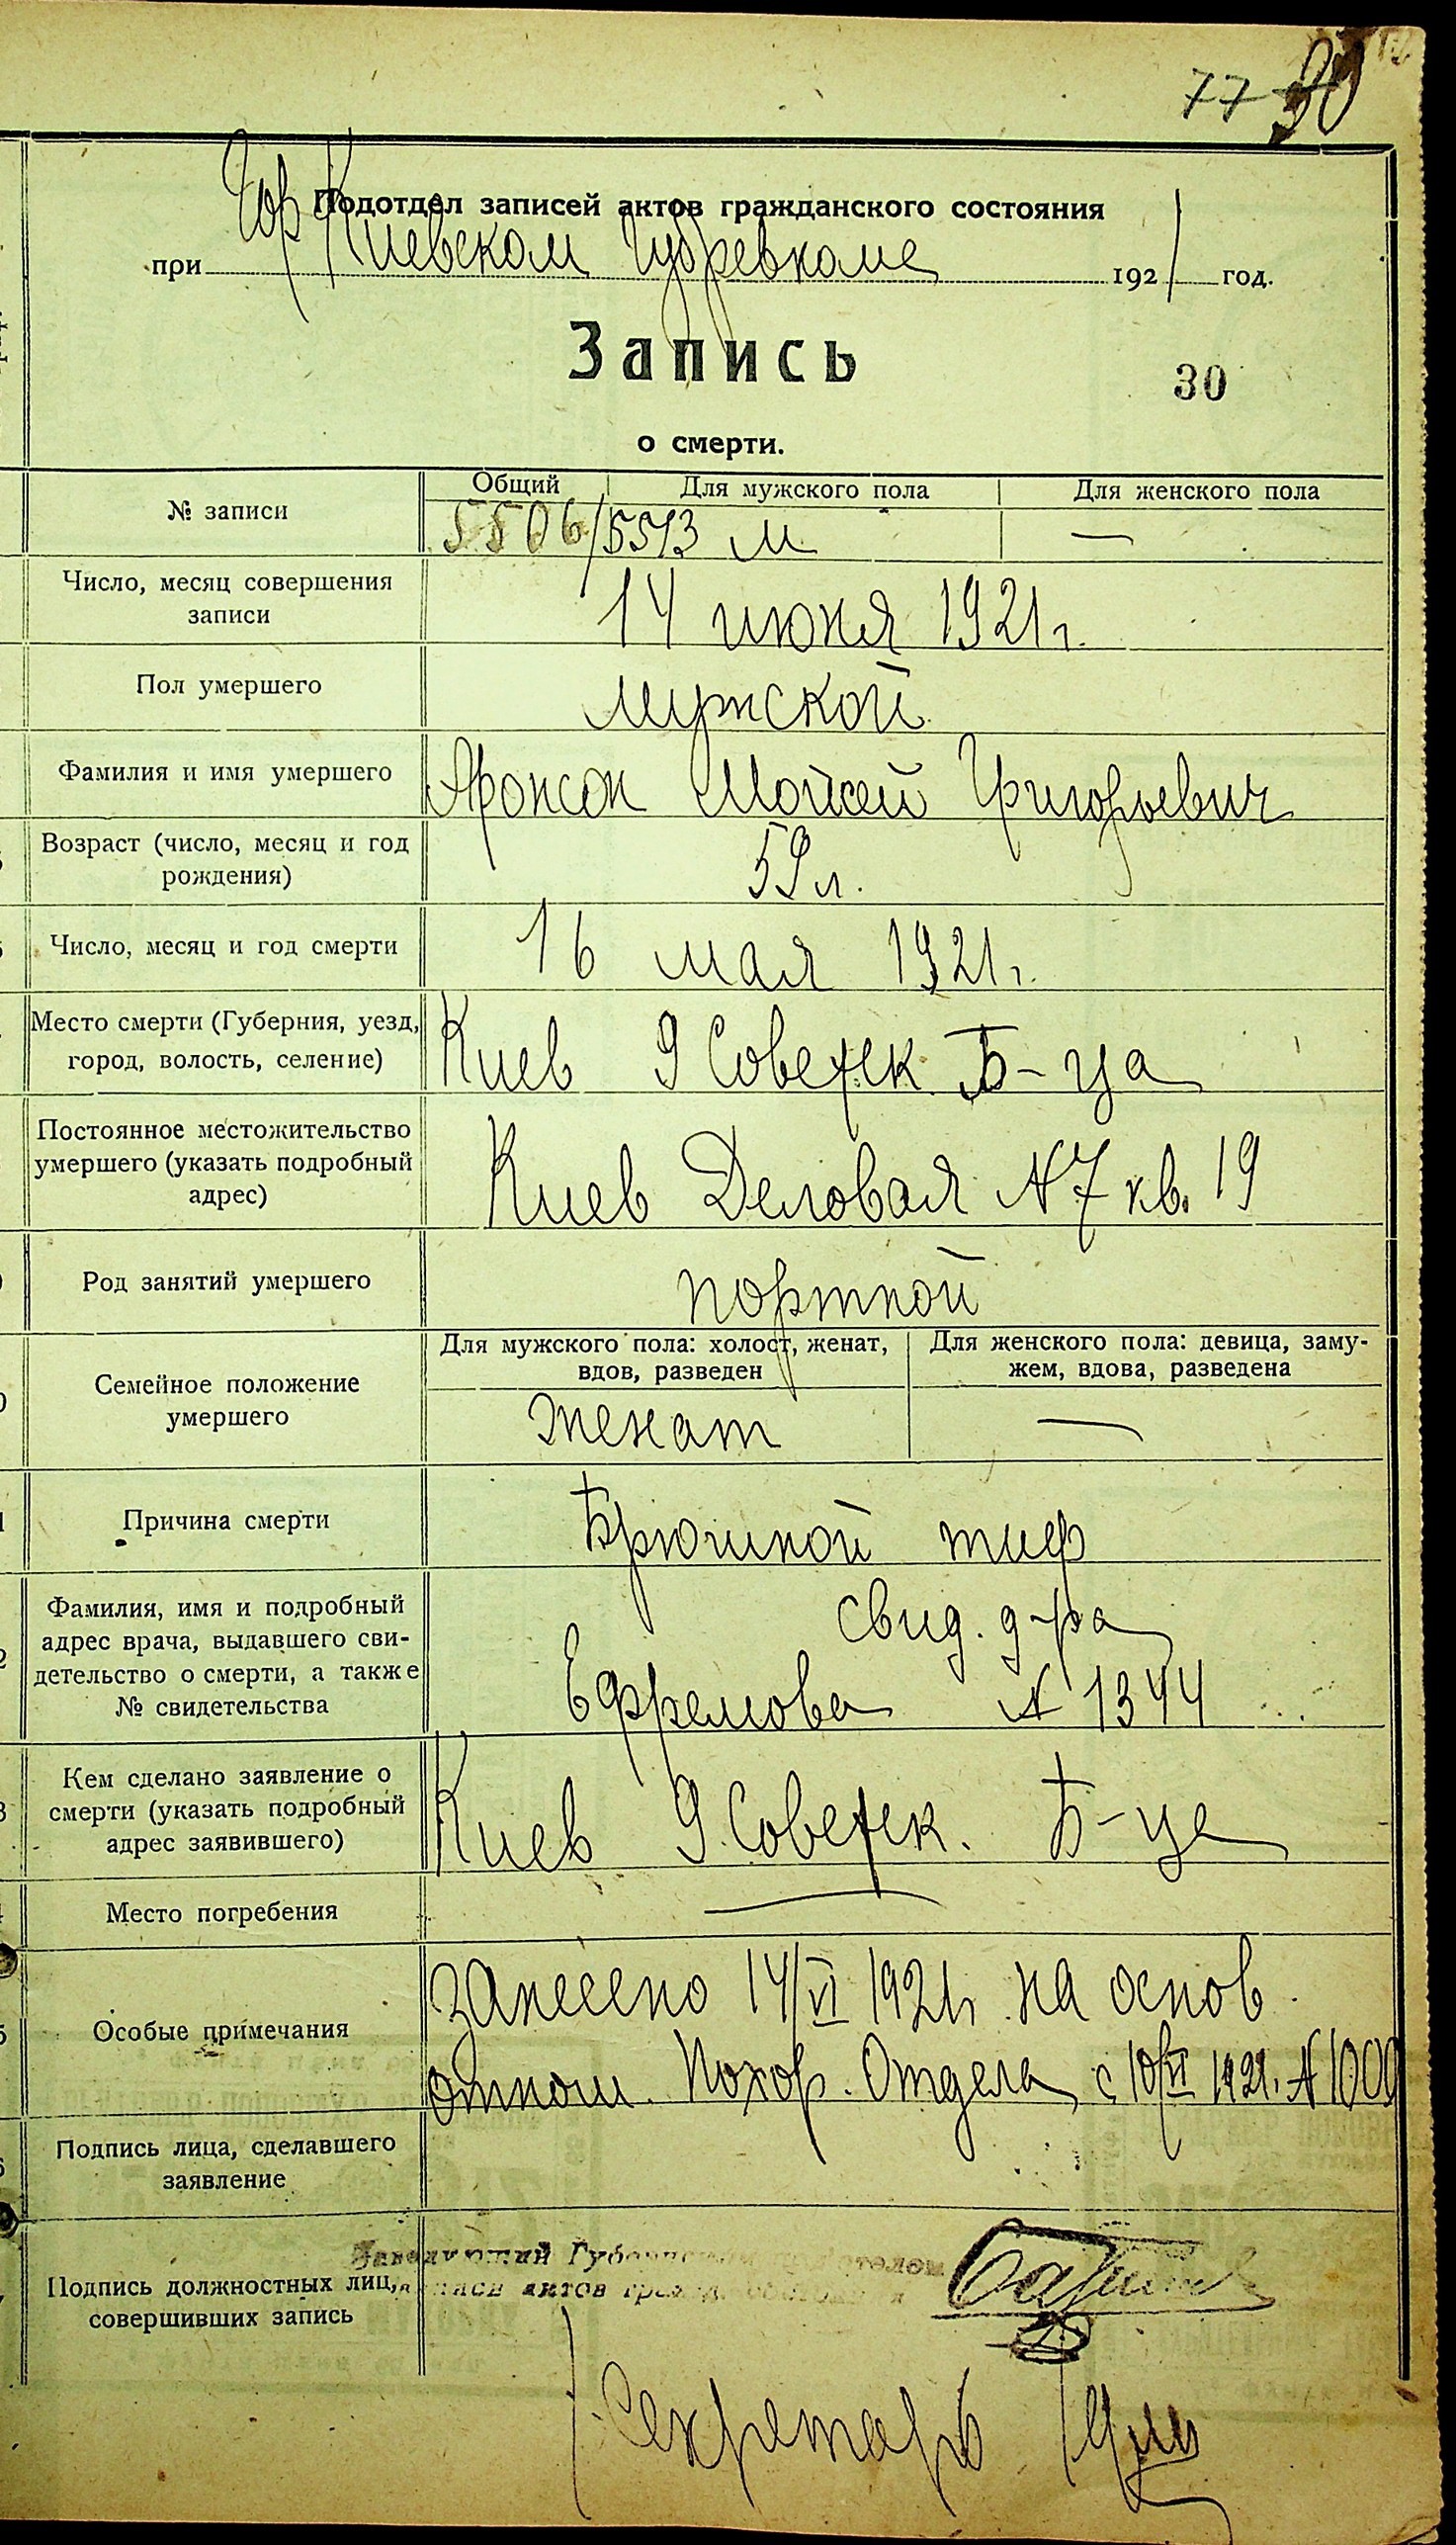 77 30
Гор
Подотдел записей актов гражданского состояния
при Киевском Губревкоме 1921 год.
Запись
30
о смерти.
№ записи
Общий Для мужского пола Для женского пола
5506/5513 м —
Число, месяц совершения
записи
14 июня 1921 г.
Пол умершего
мужской
Фамилия и имя умершего
Аронсон Мойсей Григорьевич
Возраст (число, месяц и год
рождения)
59 л.
Число, месяц и год смерти
16 мая 1921 г.
Место смерти (Губерния, уезд,
город, волость, селение)
Киев 9 Советск. Б-ца
Постоянное местожительство
умершего (указать подробный
адрес)
Киев Деловая № 7 кв. 19
Род занятий умершего
портной
Семейное положение
умершего
Для мужского пола: холост, женат,
вдов, разведен
Для женского пола: девица, заму-
жем, вдова, разведена
женат —
Причина смерти
Брюшной тиф
Фамилия, имя и подробный
адрес врача, выдавшего сви-
детельство о смерти, а также
№ свидетельства
свид. д-ра
Ефремова № 1344
Кем сделано заявление о
смерти (указать подробный
адрес заявившего)
Киев 9 Советск. Б-ца
Место погребения
—
Особые примечания
Занесено 14/VI 1921 г. на основ.
отнош. Похор. Отдела с 10/VI 1921. № 1000
Подпись лица, сделавшего
заявление
Подпись должностных лиц,
совершивших запись
Заведующий
записи актов
Секретарь